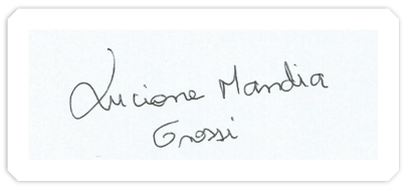 Luciane Mandia
Grossi